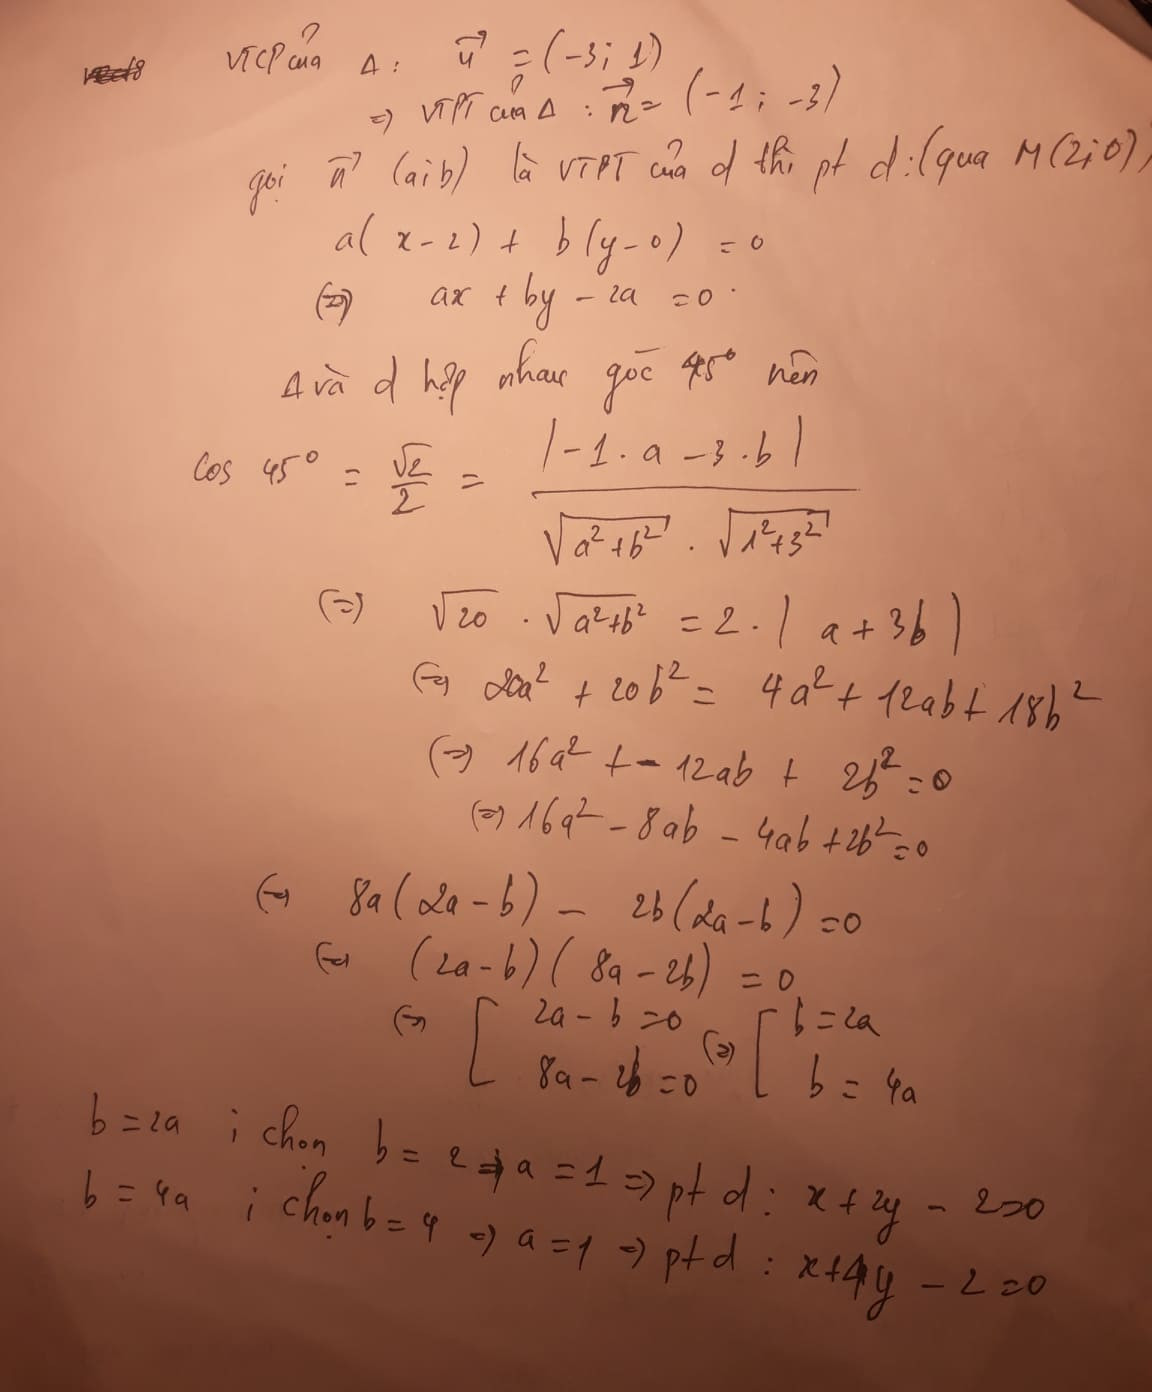 VTCP của Δ : u⃗ = (-3; 1)
=> VTPT của Δ : n⃗ = (-1; -3)
gọi n⃗ (a;b) là VTPT của d thì pt d: (qua M(2;0))
a(x-2) + b(y-0) = 0
(=) ax + by - 2a = 0.
Δ và d hợp nhau góc 45° nên
cos 45° = √2/2 = |-1.a -3.b| / (√(a²+b²) . √(1²+3²))
(=) √20 . √(a²+b²) = 2. |a+3b|
(=) 20a² + 20b² = 4a² + 12ab + 18b²
(=) 16a² + - 12ab + 2b² = 0
(=) 16a² - 8ab - 4ab + 2b² = 0
(=) 8a(2a-b) - 2b(2a-b) = 0
(=) (2a-b)(8a-2b) = 0
(=) [ 2a - b = 0 (=) [ b = 2a
8a - 2b = 0 b = 4a
b = 2a ; chọn b = 2 => a = 1 => pt d : x + 2y - 2 = 0
b = 4a ; chọn b = 4 => a = 1 => pt d : x + 4y - 2 = 0